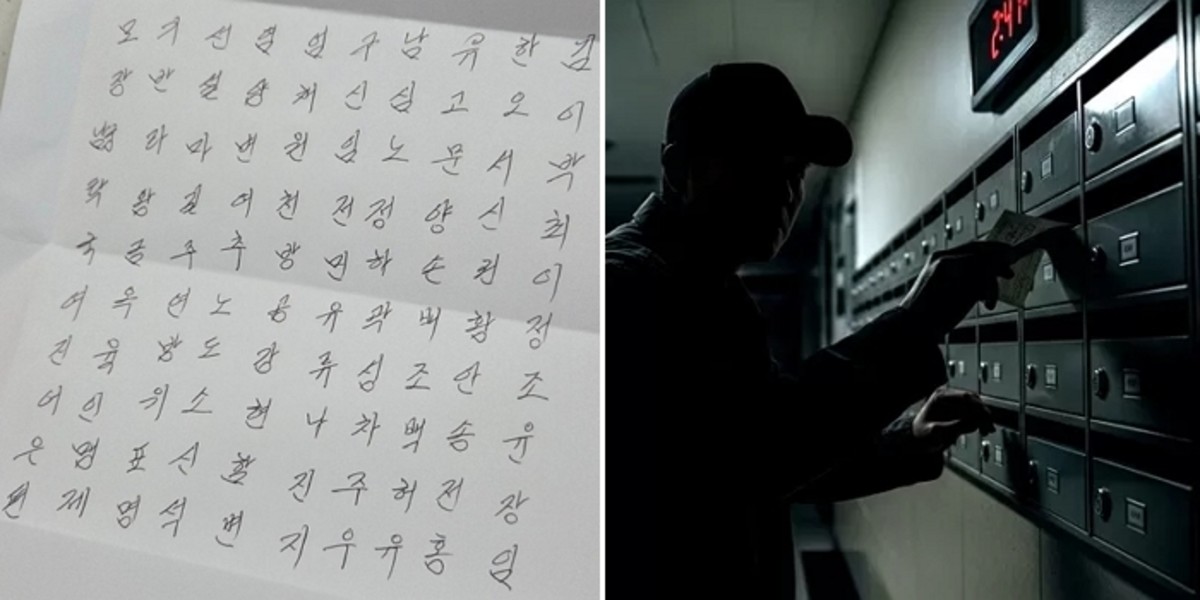 모 기 선 염 엄 구 남 유 한 김
장 반 설 채 신 심 고 오 이
라 마 변 원 임 노 문 서 박
왕 길 여 천 전 정 양 신 최
국 금 주 추 방 민 하 손 권 이
여 옥 연 노 공 유 곽 배 황 정
진 육 방 도 강 류 성 조 안 조
어 인 위 소 현 나 차 백 송 윤
은 명 표 신 함 진 주 허 전 장
편 제 명 석 변 지 우 유 홍 임
2:41